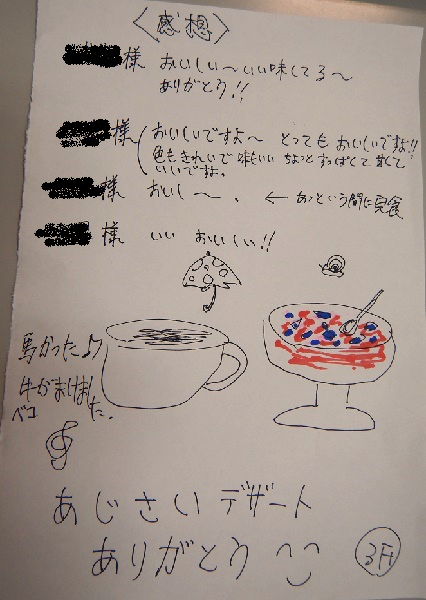 〈感想〉
様 おいしい〜いい味してる〜
ありがとう!!
様 おいしいですよ〜 とっても おいしいですよ!!
色もきれいで 味もいい ちょっと すっぱくて 甘くて
いいですね。
様 おいし〜。 ← あっという間に完食
様 いい おいしい!!
馬かった♪
牛がまけまし
た。
ベコ
あじさい デザート
ありがとう
3F